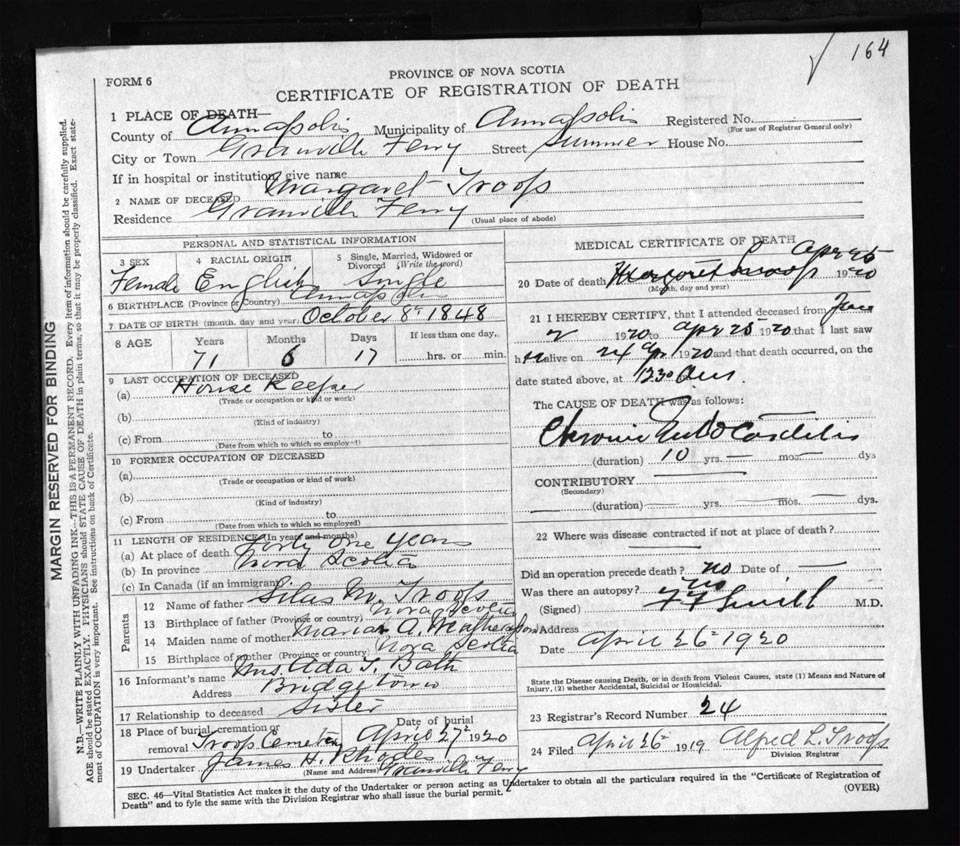 164
FORM 6
PROVINCE OF NOVA SCOTIA
CERTIFICATE OF REGISTRATION OF DEATH
1 PLACE OF DEATH—
County of Annapolis Municipality of Annapolis Registered No.
(For use of Registrar General only)
City or Town Granville Ferry Street Summer House No.
If in hospital or institution, give name
2 NAME OF DECEASED Margaret Troop
Residence Granville Ferry
(Usual place of abode)
PERSONAL AND STATISTICAL INFORMATION
3 SEX 4 RACIAL ORIGIN 5 Single, Married, Widowed or Divorced (Write the word)
Female English Single
6 BIRTHPLACE (Province or Country) Annapolis
7 DATE OF BIRTH (month, day and year) October 8th 1848
8 AGE Years Months Days If less than one day,
71 6 17 hrs. or min.
9 LAST OCCUPATION OF DECEASED
(a) House Keeper
(Trade or occupation or kind or work)
(b)
(Kind of industry)
(c) From to
(Date from which to which so employed)
10 FORMER OCCUPATION OF DECEASED
(a)
(Trade or occupation or kind or work)
(b)
(Kind of industry)
(c) From to
(Date from which to which so employed)
11 LENGTH OF RESIDENCE (In years and months)
(a) At place of death Forty one years
(b) In province Nova Scotia
(c) In Canada (if an immigrant)
Parents
12 Name of father Silas M. Troop
13 Birthplace of father (Province or country) Nova Scotia
14 Maiden name of mother Maria A.
15 Birthplace of mother (Province or country) Nova Scotia
16 Informant's name Mrs Ada T. Bath
Address Bridgetown
17 Relationship to deceased Sister
18 Place of burial, cremation or removal Troop Cemetery Date of burial April 27th 1920
19 Undertaker James H. Rhodes Granville Ferry
(Name and Address)
MEDICAL CERTIFICATE OF DEATH
20 Date of death Margaret Troop Apr 25 1920
(Month, day and year)
21 I HEREBY CERTIFY, that I attended deceased from Jan
2 1920 to Apr 25 1920 that I last saw
h er alive on 24 Apr 1920 and that death occurred, on the
date stated above, at 1230 am.
The CAUSE OF DEATH was as follows:
Chronic
(duration) 10 yrs. — mos. — dys
CONTRIBUTORY
(Secondary)
(duration) yrs. mos. dys.
22 Where was disease contracted if not at place of death?
Did an operation precede death? no Date of —
Was there an autopsy? no
(Signed) M.D.
Address
Date April 26th 1920
State the Disease causing Death, or in death from Violent Causes, state (1) Means and Nature of
Injury, (2) whether Accidental, Suicidal or Homicidal.
23 Registrar's Record Number 24
24 Filed April 26th 1919 Alfred L. Troop
Division Registrar
SEC. 46—Vital Statistics Act makes it the duty of the Undertaker or person acting as Undertaker to obtain all the particulars required in the "Certificate of Registration of
Death" and to fyle the same with the Division Registrar who shall issue the burial permit.
(OVER)
MARGIN RESERVED FOR BINDING
N.B.—WRITE PLAINLY WITH UNFADING INK—THIS IS A PERMANENT RECORD. Every item of information should be carefully supplied.
AGE should be stated EXACTLY. PHYSICIANS should STATE CAUSE OF DEATH in plain terms, so that it may be properly classified. Exact state-
ment of OCCUPATION is very important. See instructions on back of Certificate.